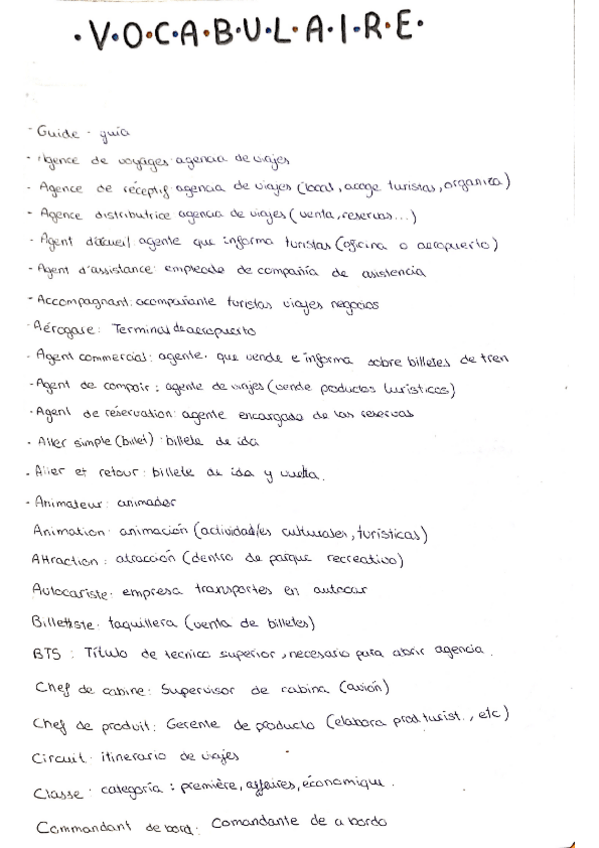 ·V·O·C·A·B·U·L·A·I·R·E·
- Guide - guía
- Agence de voyages: agencia de viajes
- Agence de réceptif: agencia de viajes (local, acoge turistas, organiza)
- Agence distributrice agencia de viajes (venta, reservas...)
- Agent d'acueil: agente que informa turistas (oficina o aeropuerto)
- Agent d'assistance: empleado de compañía de asistencia
- Accompagnant: acompañante turistas viajes negocios
- Aérogare: Terminal de aeropuerto
- Agent commercial: agente que vende e informa sobre billetes de tren
- Agent de compoir: agente de viajes (vende productos turísticos)
- Agent de réservation: agente encargado de las reservas
- Aller simple (billet): billete de ida
- Aller et retour: billete de ida y vuelta.
- Animateur: animador
Animation: animación (actividades culturales, turísticas)
Attraction: atracción (dentro de parque recreativo)
Autocariste: empresa transportes en autocar
Billettiste: taquillera (venta de billetes)
BTS: Título de tecnico superior, necesario para abrir agencia.
Chef de cabine: Supervisor de cabina (avión)
Chef de produit: Gerente de producto (elabora prod. turist., etc)
Circuit: itinerario de viajes
Classe: categoría: première, affaires, économique.
Commandant de bord: Comandante de a bordo